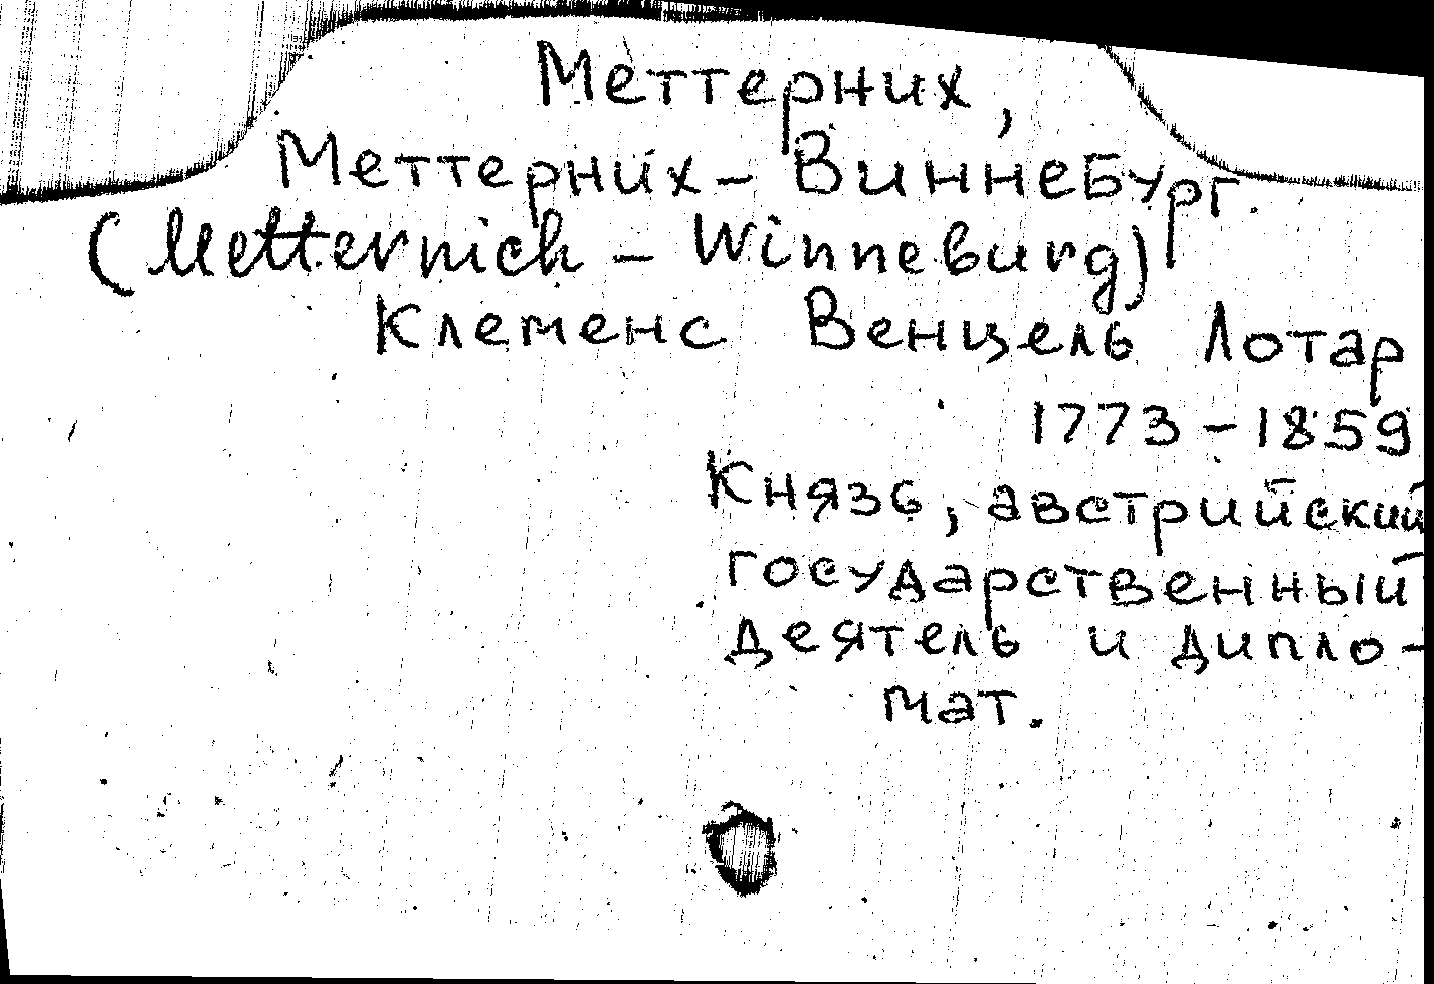 Меттерних,
Меттерних- Виннебург.
(Metternich - Winneburg)
Клеменс Венцель Лотар
1773-1859
Князь, австрийский
государственный
деятель и дипло-
мат.